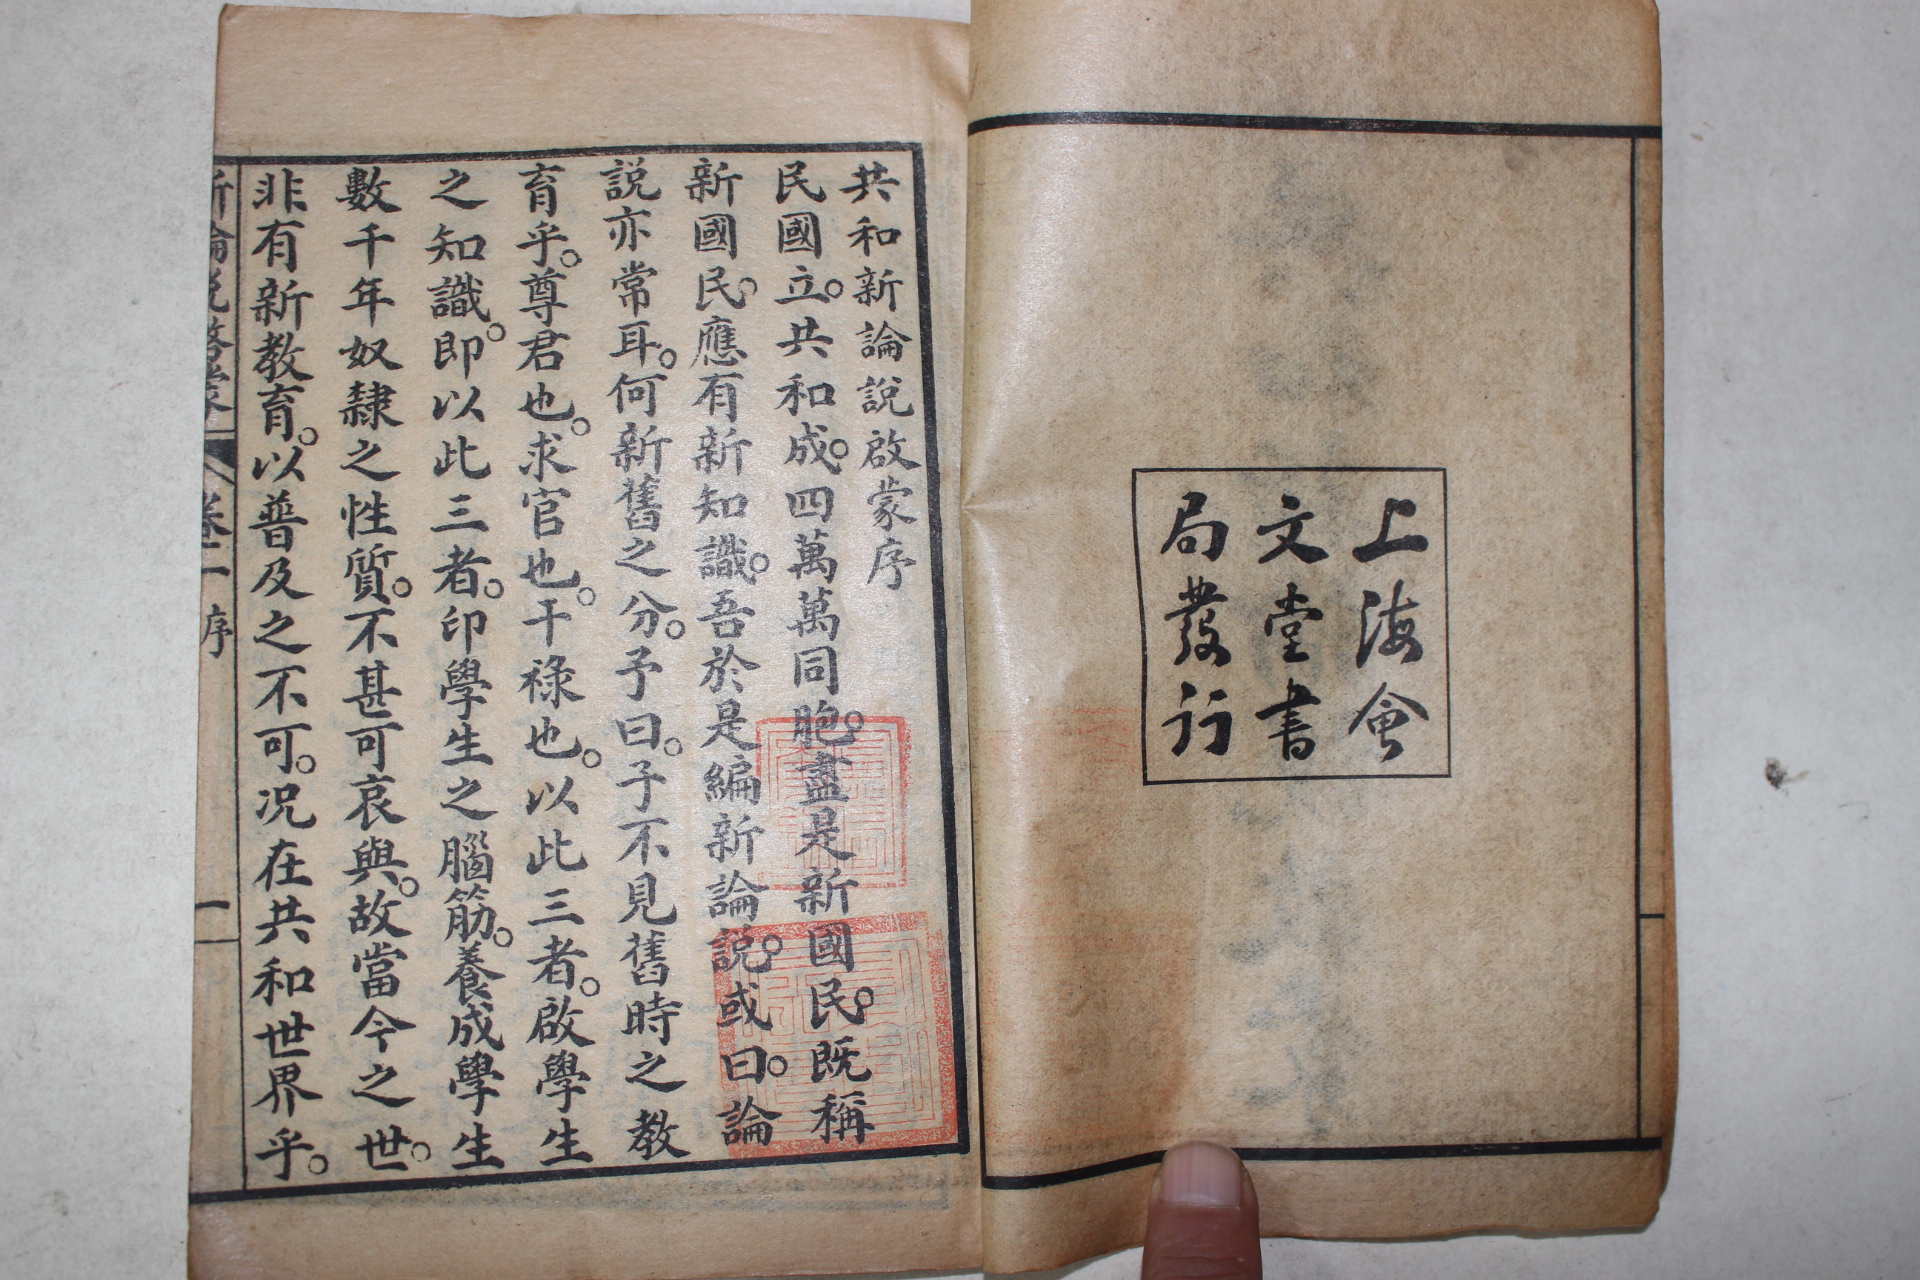 上海會
文堂書
局發行
共和新論說啟蒙序
民國立。共和成。四萬萬同胞。盡是新國民。既稱
新國民。應有新知識。吾於是編新論說。或曰。論
說亦常耳。何新舊之分。予曰。子不見舊時之教
育乎。尊君也。求官也。干祿也。以此三者。啟學生
之知識。即以此三者。印學生之腦筋。養成學生
數千年奴隸之性質。不甚可哀與。故當今之世。
非有新教育。以普及之不可。况在共和世界乎。
新論說啟蒙
卷一
序
一